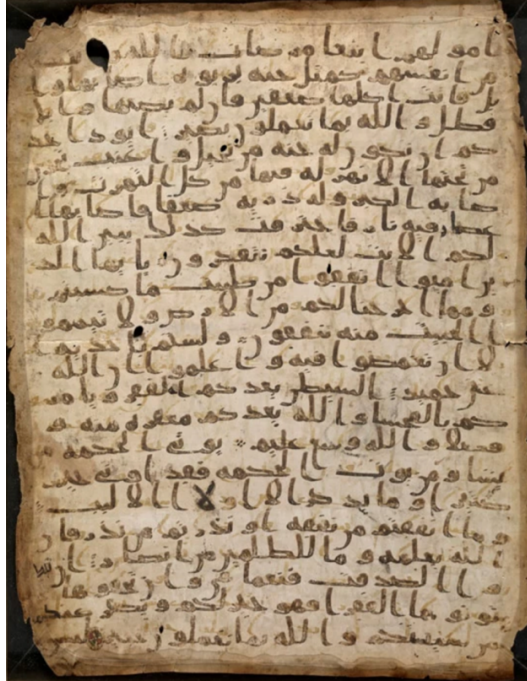 امولهم ابتغا مرضات الله و تثبيتا
من انفسهم كمثل جنه بربوه اصابها وا
بل فاتت اكلها ضعفين فان لم يصبها وابل
فطل و الله بما تعملون بصير ايود احد
كم ان تكون له جنه من نخيل و اعنب تجرى
من تحتها الانهر له فيها من كل الثمرت و ا
صابه الكبر و له ذريه ضعفا فاصابها ا
عصار فيه نار فاحترقت كذلك يبين الله
لكم الايت لعلكم تتفكرون يايها الذ
ين امنوا انفقوا من طيبت ما كسبتم
و مما اخرجنا لكم من الارض و لا تيممو
ا الخبيث منه تنفقون و لستم باخذيه ا
لا ان تغمضوا فيه و اعلموا ان الله
غنى حميد الشيطن يعدكم الفقر و يامر
كم بالفحشا و الله يعدكم مغفره منه و
فضلا و الله وسع عليم يوتى الحكمه من
يشا و من يوت الحكمه فقد اوتى خيرا
كثيرا و ما يذكر الا اولوا الالبب
و ما انفقتم من نفقه او نذرتم من نذر فان
الله يعلمه و ما للظلمين من انصار ان
تبدوا الصدقت فنعما هى و ان تخفوها و
توتوها الفقرا فهو خير لكم و يكفر عنكم
من سيتكم و الله بما تعملون خبير ليس